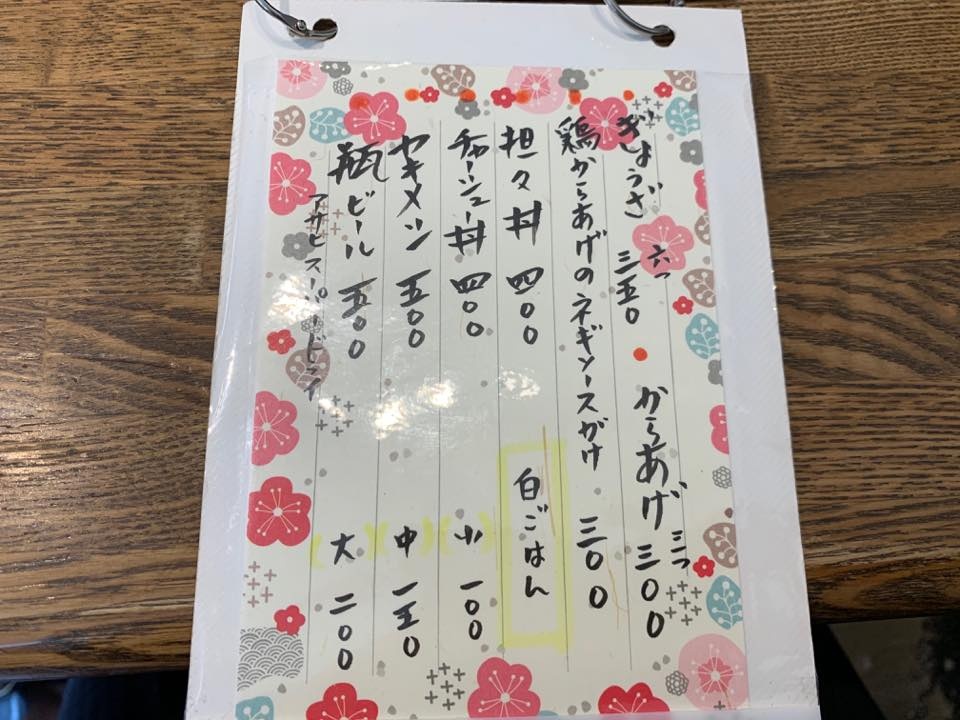 ぎょうざ 六つ 三五〇
からあげ 三つ 三〇〇
鶏からあげのネギソースがけ 三〇〇
担々丼 四〇〇
チャーシュー丼 四〇〇
ヤキメシ 五〇〇
瓶ビール 五〇〇
アサヒスーパードライ
白ごはん
小 一〇〇
中 一五〇
大 二〇〇